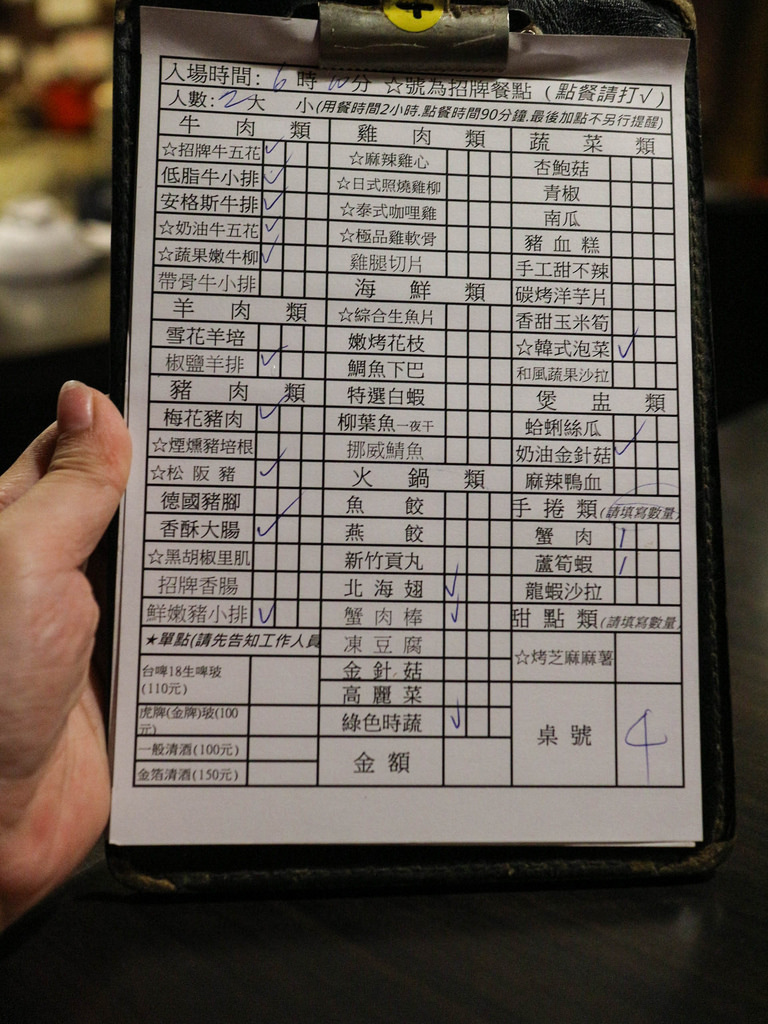 入場時間: 6 時 10分 ☆號為招牌餐點 (點餐請打√)
人數: 2大 小(用餐時間2小時.點餐時間90分鐘.最後加點不另行提醒)
牛肉類
☆招牌牛五花 ✓
低脂牛小排 ✓
安格斯牛排 ✓
☆奶油牛五花 ✓
☆蔬果嫩牛柳 ✓
帶骨牛小排
羊肉類
雪花羊培
椒鹽羊排 ✓
豬肉類
梅花豬肉 ✓
☆煙燻豬培根
☆松阪豬 ✓
德國豬腳
香酥大腸 ✓
☆黑胡椒里肌
招牌香腸
鮮嫩豬小排 ✓
★單點(請先告知工作人員
台啤18生啤玻
(110元)
虎牌(金牌)玻(100
元)
一般清酒(100元)
金箔清酒(150元)
雞肉類
☆麻辣雞心
☆日式照燒雞柳
☆泰式咖哩雞
☆極品雞軟骨
雞腿切片
海鮮類
☆綜合生魚片
嫩烤花枝
鯛魚下巴
特選白蝦
柳葉魚一夜干
挪威鯖魚
火鍋類
魚餃
燕餃
新竹貢丸
北海翅 ✓
蟹肉棒 ✓
凍豆腐
金針菇
高麗菜
綠色時蔬 ✓
金額
蔬菜類
杏鮑菇
青椒
南瓜
豬血糕
手工甜不辣
碳烤洋芋片
香甜玉米筍
☆韓式泡菜 ✓
和風蔬果沙拉
煲盅類
蛤蜊絲瓜
奶油金針菇 ✓
麻辣鴨血
手捲類(請填寫數量
蟹肉 1
蘆筍蝦 1
龍蝦沙拉
甜點類(請填寫數量
☆烤芝麻麻薯
桌號 4